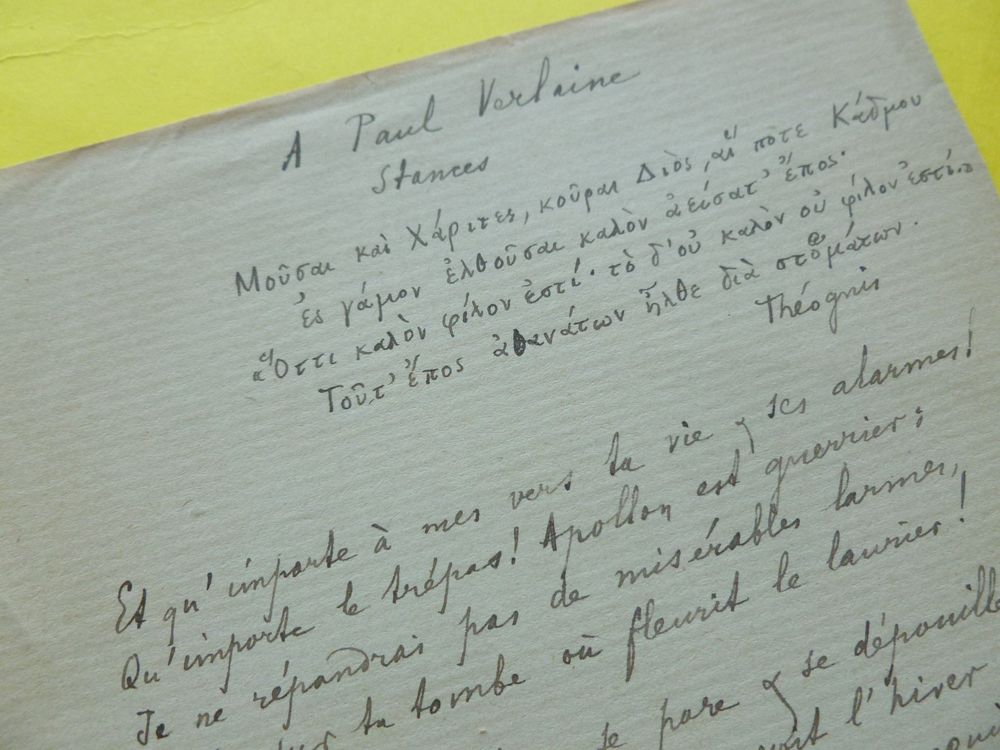 A Paul Verlaine
Stances
Μοῦσαι καὶ Χάριτες, κοῦραι Διὸς, αἵ ποτε Κάδμου
ἐς γάμον ἐλθοῦσαι καλὸν ἀείσατ’ ἔπος·
Ὅττι καλὸν φίλον ἐστί· τὸ δ’ οὐ καλὸν οὐ φίλον ἐστίν
Τοῦτ’ ἔπος ἀθανάτων ἦλθε διὰ στομάτων.
Théognis
Et qu'importe à mes vers ta vie & ses alarmes!
Qu'importe le trépas! Apollon est guerrier:
Je ne répandrai pas de misérables larmes,
ta tombe où fleurit le laurier!
se pare & se dépouille
l'hiver